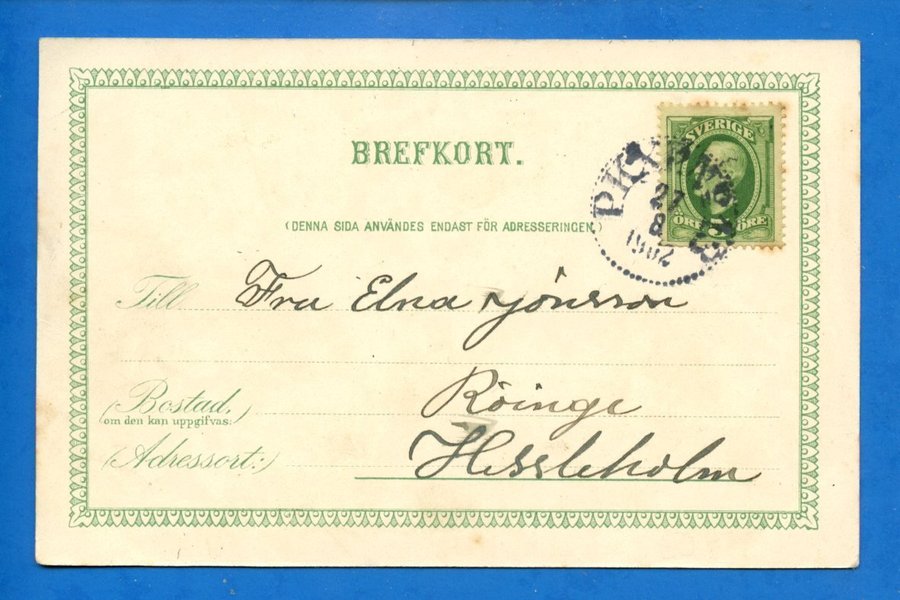 BREFKORT.
SVERIGE
ÖRE ÖRE
27
8
1902
(DENNA SIDA ANVÄNDES ENDAST FÖR ADRESSERINGEN.)
Till Fru Elna Jönsson
(Bostad,)
om den kan uppgifvas.
Röinge
(Adressort:)
Hessleholm